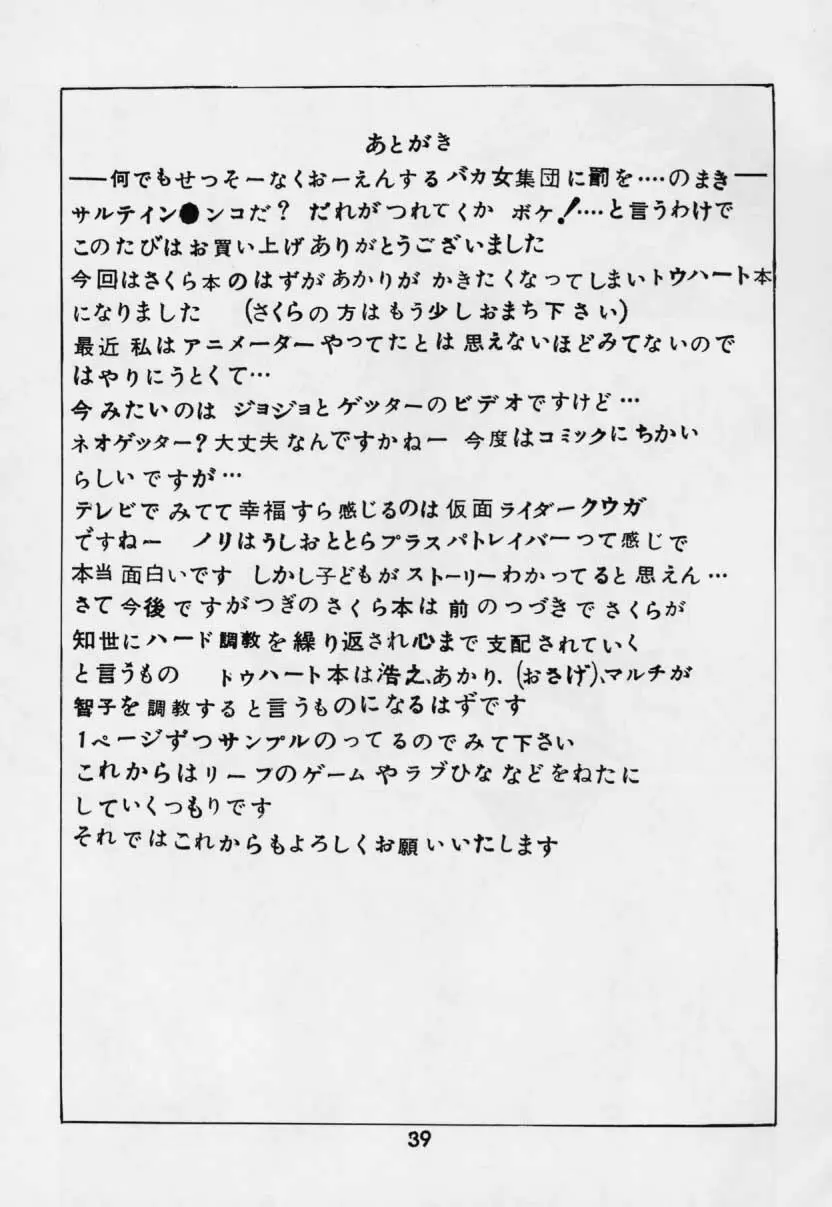 あとがき
――何でもせっそーなくおーえんするバカ女集団に罰を‥‥のまき――
サルティン●ンコだ? だれがつれてくか ボケ!‥‥と言うわけで
このたびはお買い上げありがとうございました
今回はさくら本のはずがあかりが かきたくなってしまいトウハート本
になりました (さくらの方はもう少しおまち下さい)
最近 私はアニメーターやってたとは 思えないほどみてないので
はやりにうとくて…
今みたいのは ジョジョとゲッターのビデオですけど…
ネオゲッター?大丈夫なんですかねー 今度はコミックにちかい
らしいですが…
テレビでみてて幸福すら感じるのは仮面ライダークウガ
ですねー ノリはうしおととらプラスパトレイバーって感じで
本当面白いです しかし子どもがストーリーわかってると思えん…
さて今後ですがつぎのさくら本は前のつづきでさくらが
知世にハード調教を繰り返され心まで支配されていく
と言うもの トゥハート本は浩之、あかり、(おさげ)、マルチが
智子を調教すると言うものになるはずです
1ページずつサンプルのってるのでみて下さい
これからはリーフのゲームやラブひななどをねたに
していくつもりです
それではこれからもよろしくお願いいたします
39